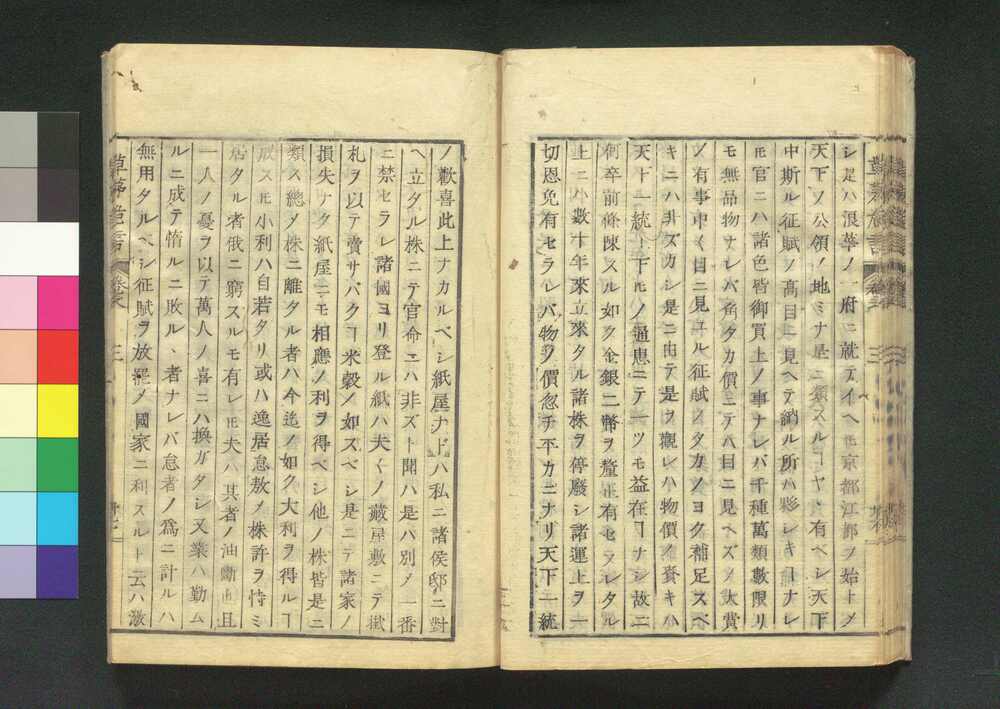 シ是ハ浪華ノ一府ニ就テイヘ𪜈京都江都ヲ始トメ
天下ノ公領ノ地ミナ是ニ類スルヿヤヽ有ベシ天下
中斯ル征賦ノ高目ニ見ヘテ納ル所ハ夥シキヿナレ
𪜈官ニハ諸色皆御買上ノ事ナレバ千種萬類數限リ
モ無品物ナレバ角タカ價ニテハ目ニ見ヘズノ大費
ノ有事中〱目ニ見ユル征賦ノタカノヨク補足スベ
キニハ非ズカシ是ニ由テ是ヲ觀レハ物價ノ賽キハ
天下一統上下𪜈ノ通患ニテ一ツモ益在ヿナシ故ニ
何卒前條陳スル如ク金銀二幣ヲ釐正有セラレタル
上ニ小數十年來立來タル諸株ヲ停廢シ諸運上ヲ一
切恩免有セラレバ物ノ價忽チ平カニナリ天下一統
ノ歡喜此上ナカルベシ紙屋ナドハ私ニ諸侯邸ニ對
ヘ立ダル株ニテ官命ニハ非ズト聞ハ是ハ別メ一番
ニ禁セラレ諸國ヨリ登ル紙ハ夫〱ノ藏屋敷ニテ獄
札ヲ以テ賣サバクヿ米穀ノ如スベシ是ニテ諸家ノ
損失ナク紙屋ニモ相應ノ利ヲ得ベシ他ノ株皆是ニ
類ス總メ株ニ離タル者ハ今迄ノ如ク大利ヲ得ルヿ
成ズ𪜈小利ハ自若タリ或ハ逸居怠敖メ株許ヲ恃ミ
居タル者俄ニ窮スルモ有レ𪜈夫ハ其者ノ油斷也且
一人ノ憂ヲ以テ萬人ノ喜ニハ換ガタシ又業ハ勤ム
ルニ成テ惰ルニ敗ルヽ者ナレバ怠者ノ爲ニ計ルハ
無用タルベシ征賦ヲ放罷メ國家ニ利スルト云ハ激
草茅危言
卷之
三